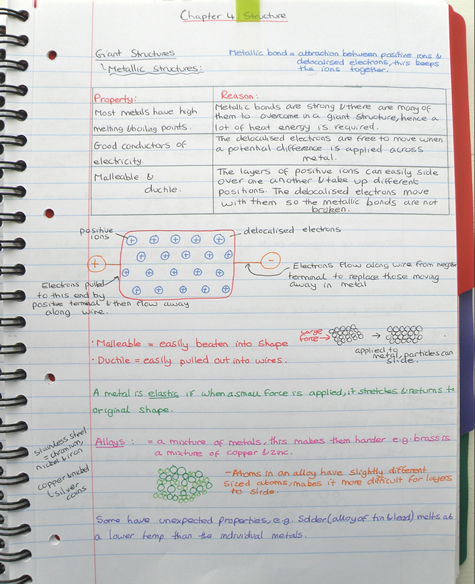 Chapter 4: Structure
Giant Structures
Metallic bond = attraction between positive ions &
delocalised electrons, this keeps
the ions together.
↳ Metallic structures:
Property:
Reason:
Most metals have high
melting & boiling points.
Metallic bonds are strong & there are many of
them to overcome in a giant structure, hence a
lot of heat energy is required.
Good conductors of
electricity.
The delocalised electrons are free to move when
a potential difference is applied across
metal.
Malleable &
ductile.
The layers of positive ions can easily slide
over one another & take up different
positions. The delocalised electrons move
with them so the metallic bonds are not
broken.
positive
ions
delocalised electrons
+
-
Electrons pulled
to this end by
positive terminal & then flow away
along wire.
Electrons flow along wire from negative
terminal to replace those moving
away in metal
• Malleable = easily beaten into shape
• Ductile = easily pulled out into wires.
large
force →
applied to
metal, particles can
slide.
A metal is elastic if when a small force is applied, it stretches & returns to
original shape.
Alloys: = a mixture of metals, this makes them harder e.g. brass is
a mixture of copper & zinc.
stainless steel
= chromium,
nickel & iron
copper & nickel
silver
coins
- Atoms in an alloy have slightly different
sized atoms, makes it more difficult for layers
to slide.
Some have unexpected properties, e.g. Solder (alloy of tin & lead) melts at
a lower temp than the individual metals.